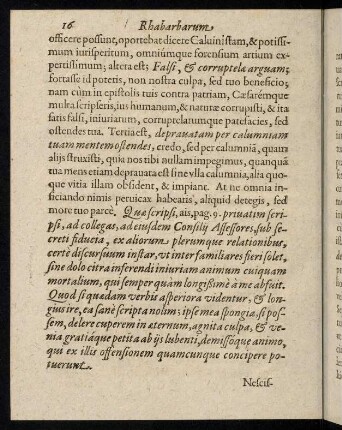 16 Rhabarbarum
officere possunt, oportebat dicere Caluinistam, & potissi-
mum iurisperitum, omniúmque forensium artium ex-
pertissimum; altera est; Falsi, & corruptelæ arguam;
fortasse id poteris, non nostra culpa, sed tuo beneficio;
nam cùm in epistolis tuis contra patriam, Cæsarémque
multa scripseris, ius humanum, & naturæ corrupisti, & ita
satis falsi, iniuriarum, corruptelarumque patefacies, sed
ostendes tua. Tertia est, deprauatam per calumniam
tuam mentem ostendes, credo, sed per calumniã, quam
alijs struxisti, quia nos tibi nullam impegimus, quanquã
tua mens etiam deprauata est sine vlla calumnia, alia quo-
que vitia illam obsident, & impiant. At ne omnia in-
ficiando nimis peruicax habearis, aliquid detegis, sed
more tuo parcè. Quæ scripsi, ais, pag. 9. priuatim scri-
psi, ad collegas, ad eiusdem Consilij Assessores, sub se-
creti fiducia, ex aliorum plerumque relationibus,
certè discursuum instar, vt inter familiares fieri solet,
sine dolo citra inferendi iniuriam animum cuiquam
mortalium, qui semper quàm longissimè à me abfuit.
Quod si quædam verbis asperiora videntur, & lon-
gius ire, ea sanè scripta nolim; ipse mea spongia, si pos-
sem, delere cuperem in æternum, agnita culpa, & ve-
nia gratiáque petita ab ijs lubenti, demissoque animo,
qui ex illis offensionem quamcunque concipere po-
tuerunt.
Nescis-